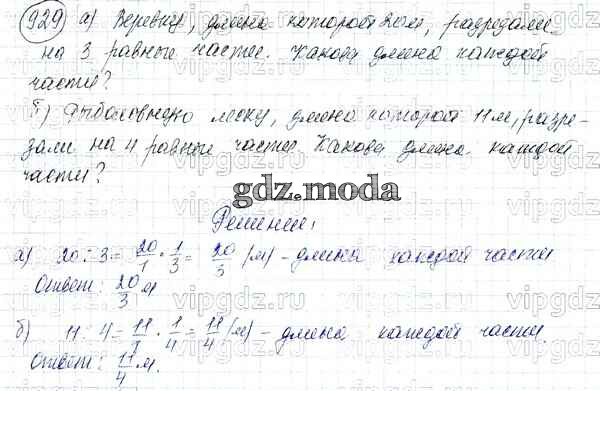 929 а) Веревку, длина которой 20м, разрезали
на 3 равные части. Какова длина каждой
части?
б) Рыболовную леску, длина которой 11м, разре-
зали на 4 равные части. Какова длина каждой
части?
gdz.moda
Решение:
а) 20 : 3 = 20/1 · 1/3 = 20/3 (м) – длина каждой части
Ответ: 20/3 м
б) 11 : 4 = 11/1 · 1/4 = 11/4 (м) – длина каждой части.
Ответ: 11/4 м.
vipgdz.ru